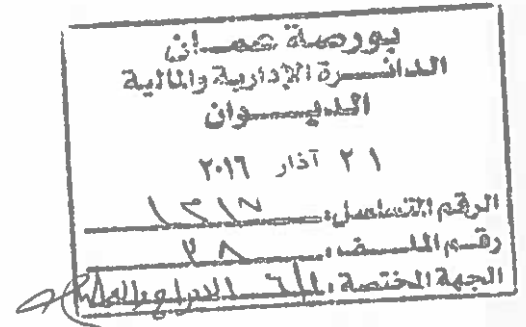 بورصة عمان
الدائرة الإدارية والمالية
الديوان
٢١ آذار ٢٠١٦
الرقم المتسلسل:
رقم الملف:
الجهة المختصة: